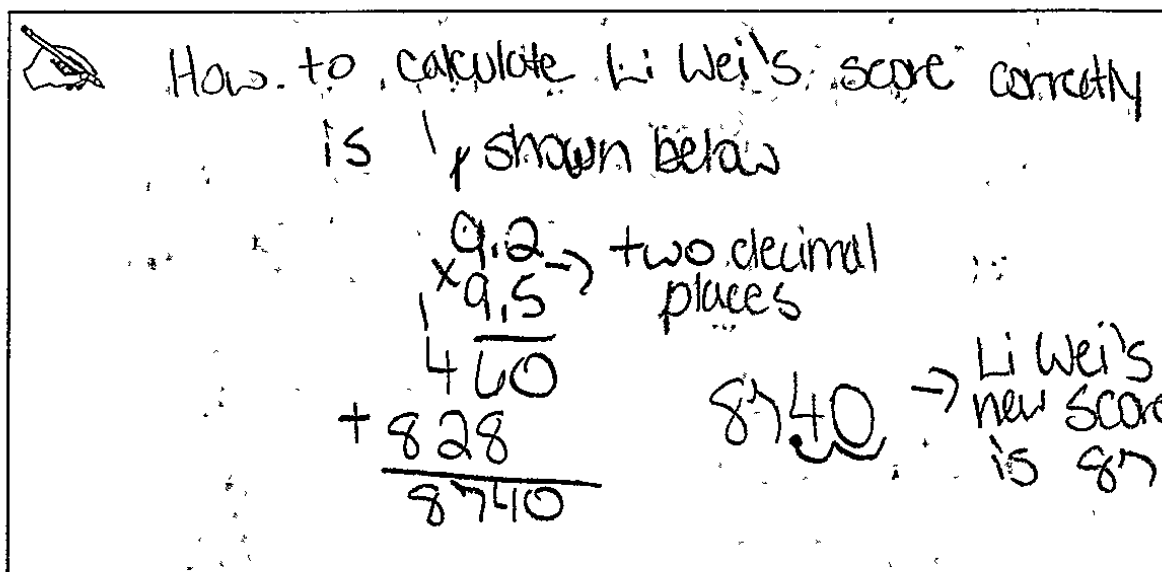 How to calculate Li Wei's score correctly
is shown below
9.2 → two decimal
× 9.5 places
1
460
+ 828
8740
8740 → Li Wei's
new score
is 87